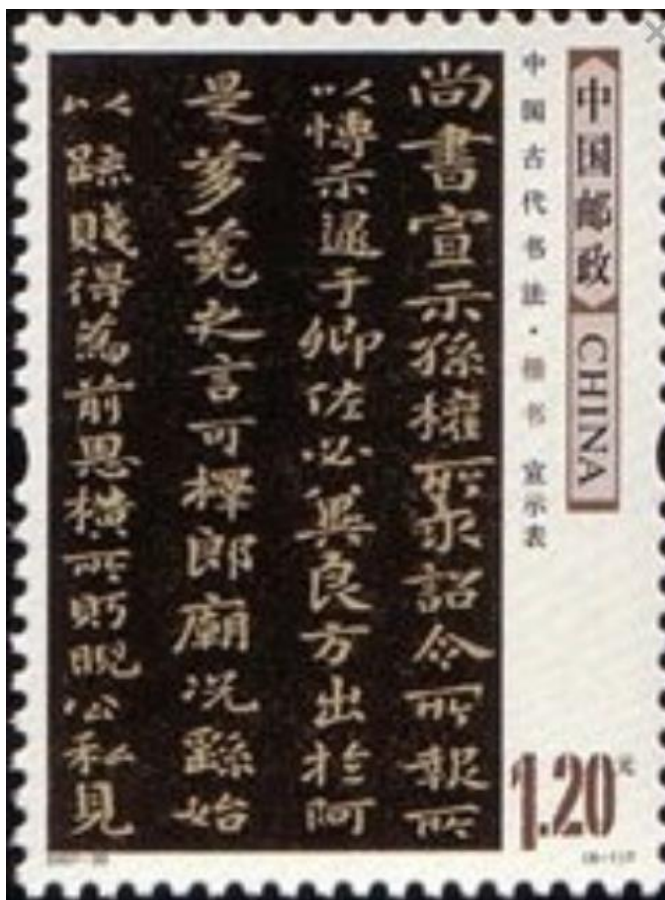 中国邮政 CHINA
中国古代书法·楷书 宣示表
尚書宣示孫權所求詔令所報所
以愽示逮于卿佐必兾良方出於阿
是芻蕘之言可擇郎廟況繇始
以疏賤得為前恩横所眄睨公私見
1.20元